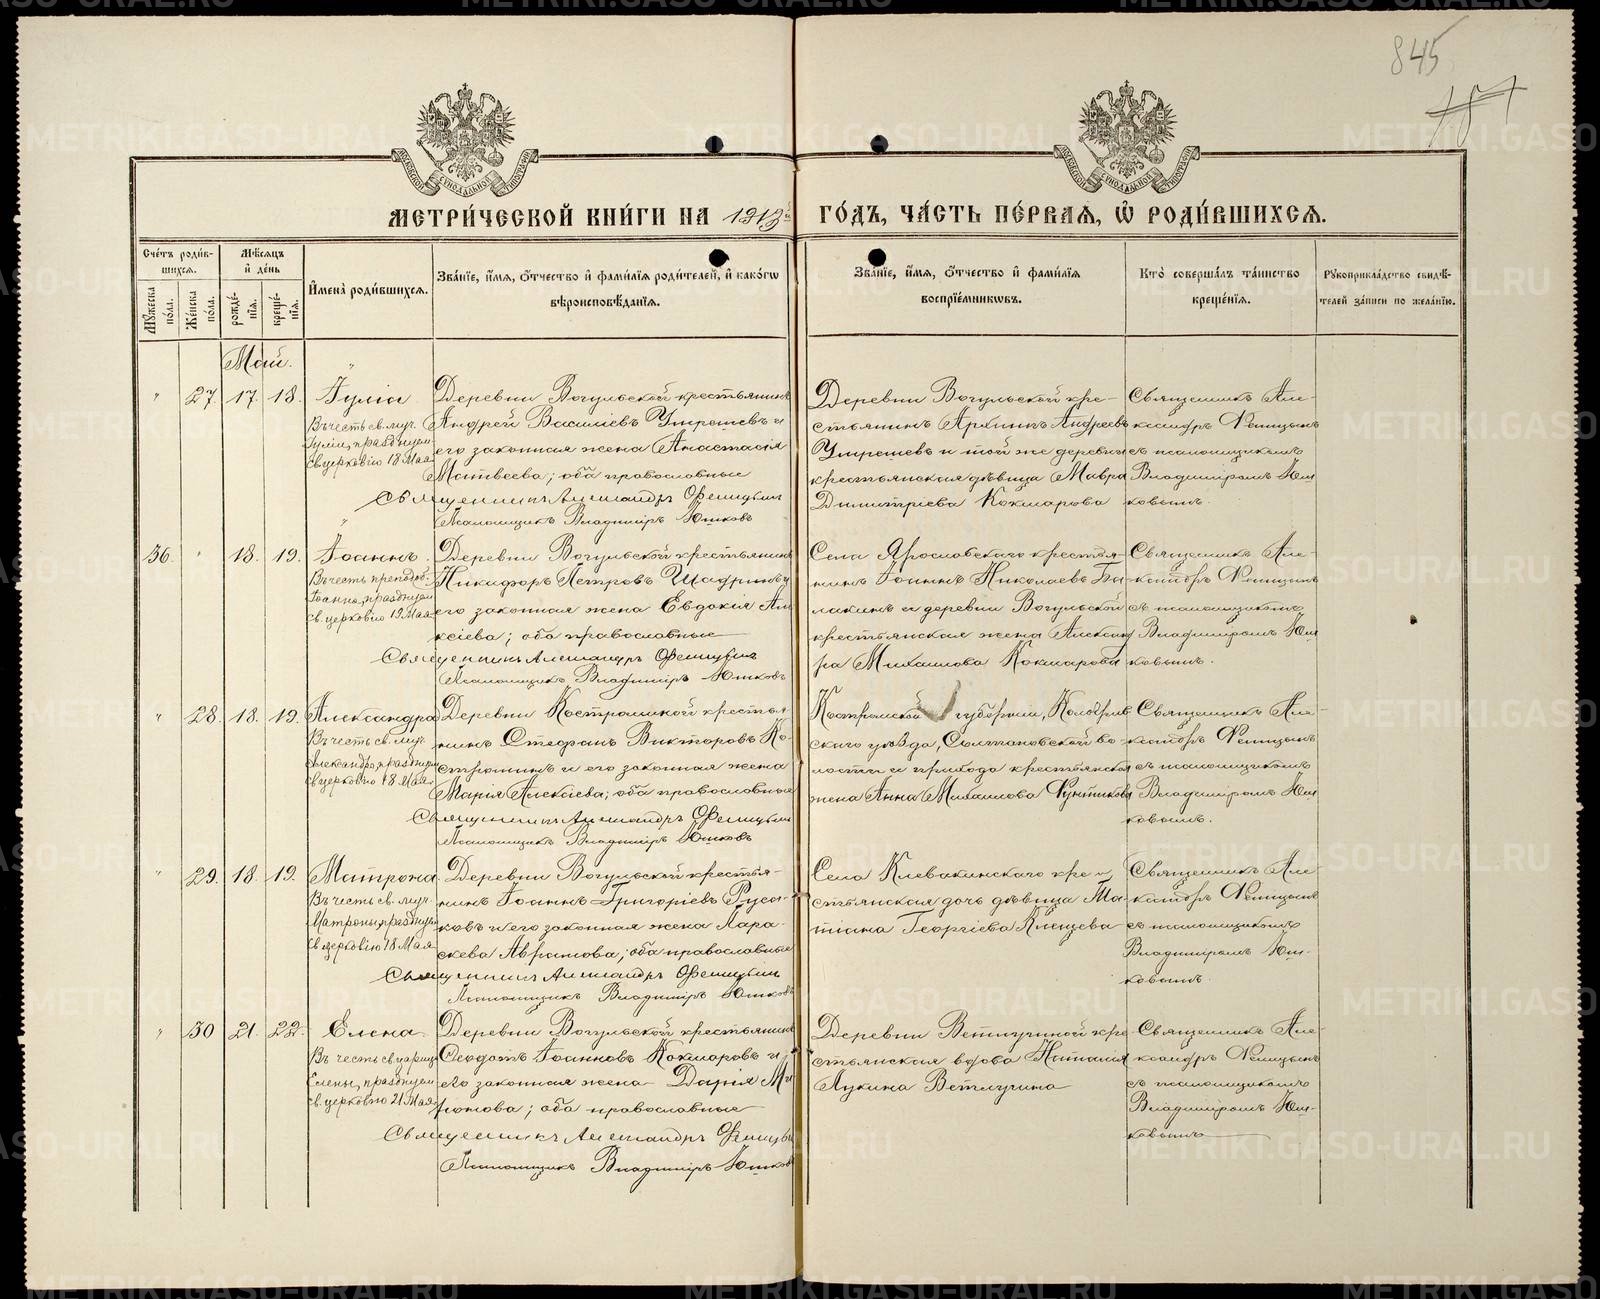 845
МЕТРИ́ЧЕСКОЙ КНИ́ГИ НА 1913й ГО́ДЪ, ЧА́СТЬ ПЕ́РВАЯ, Ѡ҆ РОДИ́ВШИХСЯ.
Сче́тъ роди́в-
шихся.
Мѣ́сяцъ
и҆ де́нь
Мꙋ́жеска
по́ла.
Же́нска
по́ла.
рожде́-
нїя.
креще́-
нїя.
И҆мена̀ роди́вшихся.
Зва́нїе, и҆́мя, ѻ҆́тчество и҆ фами́лїя роди́телей, и҆ како́гѡ
вѣроисповѣ́данїя.
Зва́нїе, и҆́мя, ѻ҆́тчество и҆ фами́лїя
воспрїе́мникѡвъ.
Кто̀ соверша́лъ та́инство
креще́нїя.
Рꙋкоприкла́дство свидѣ́-
телей за́писи по жела́нїю.
Май.
27. 17. 18. Іулія
Въ честь св. муч.
Іуліи, празднуем.
св. церковію 18 Мая
Деревни Вогульской крестьянинъ
Андрей Василіевъ Упрешевъ и
его законная жена Анастасія
Матвеева; оба православные
Священникъ Александръ Феницынъ
Псаломщикъ Владиміръ Юшковъ
Деревни Вогульской кре-
стьянинъ Архипъ Андреевъ
Упрешевъ и той же деревни
крестьянская дѣвица Мавра
Димитріева Кокшарова
Священникъ Але-
ксандръ Феницынъ
съ псаломщикомъ
Владиміромъ Юш-
ковымъ.
36. 18. 19. Іоаннъ
Въ честь преподоб.
Іоанна, празднуем
св. церковію 19 Мая
Деревни Вогульской крестьянинъ
Никифоръ Петровъ Шадринъ и
его законная жена Евдокія Але
ксіева; оба православные
Священникъ Александръ Феницынъ
Псаломщикъ Владиміръ Юшковъ
Села Ярославскаго крестья-
нинъ Іоаннъ Николаевъ Ба-
лакинъ и деревни Вогульской
крестьянская жена Александ
ра Михаилова Кокшарова
Священникъ Але-
ксандръ Феницынъ
съ псаломщикомъ
Владиміромъ Юш
ковымъ.
28. 18. 19. Александра
Въ честь св. муч.
Александры, празднуем
св. церковію 18 Мая
Деревни Костроминой крестья
нинъ Стефанъ Викторовъ Ко-
строминъ и его законная жена
Марія Алексіева; оба православные
Священникъ Александръ Феницынъ
Псаломщикъ Владиміръ Юшковъ
Костромской губерніи, Кологрив
скаго уѣзда, во-
лости и прихода крестьянская
жена Анна Михаилова
Священникъ Але-
ксандръ Феницынъ
съ псаломщикомъ
Владиміромъ Юш
ковымъ.
29. 18. 19. Матрона
Въ честь св. муч.
Матроны, празднуем
св. церковію 18 Мая
Деревни Вогульской крестья-
нинъ Іоаннъ Григоріевъ Руса-
ковъ и его законная жена Пара-
скева Аврамова; оба православные
Священникъ Александръ Феницынъ
Псаломщикъ Владиміръ Юшковъ
Села Клевакинскаго кре-
стьянская дочь дѣвица Та-
тіана Георгіева Клещева
Священникъ Але-
ксандръ Феницынъ
съ псаломщикомъ
Владиміромъ Юш-
ковымъ.
30 21. 22. Елена
Въ честь св. цариц.
Елены, празднуем
св. церковію 21 Мая
Деревни Вогульской крестьянинъ
Ѳеодотъ Іоанновъ Кокшаровъ и
его законная жена Дарія Ми
; оба православные
Священникъ Александръ Феницынъ
Псаломщикъ Владиміръ Юшковъ
Деревни Ветлугиной кре-
стьянская вдова Наталія
Лукина Ветлугина
Священникъ Але-
ксандръ Феницынъ
съ псаломщикомъ
Владиміромъ Юш-
ковымъ
METRIKI.GASO-URAL.RU